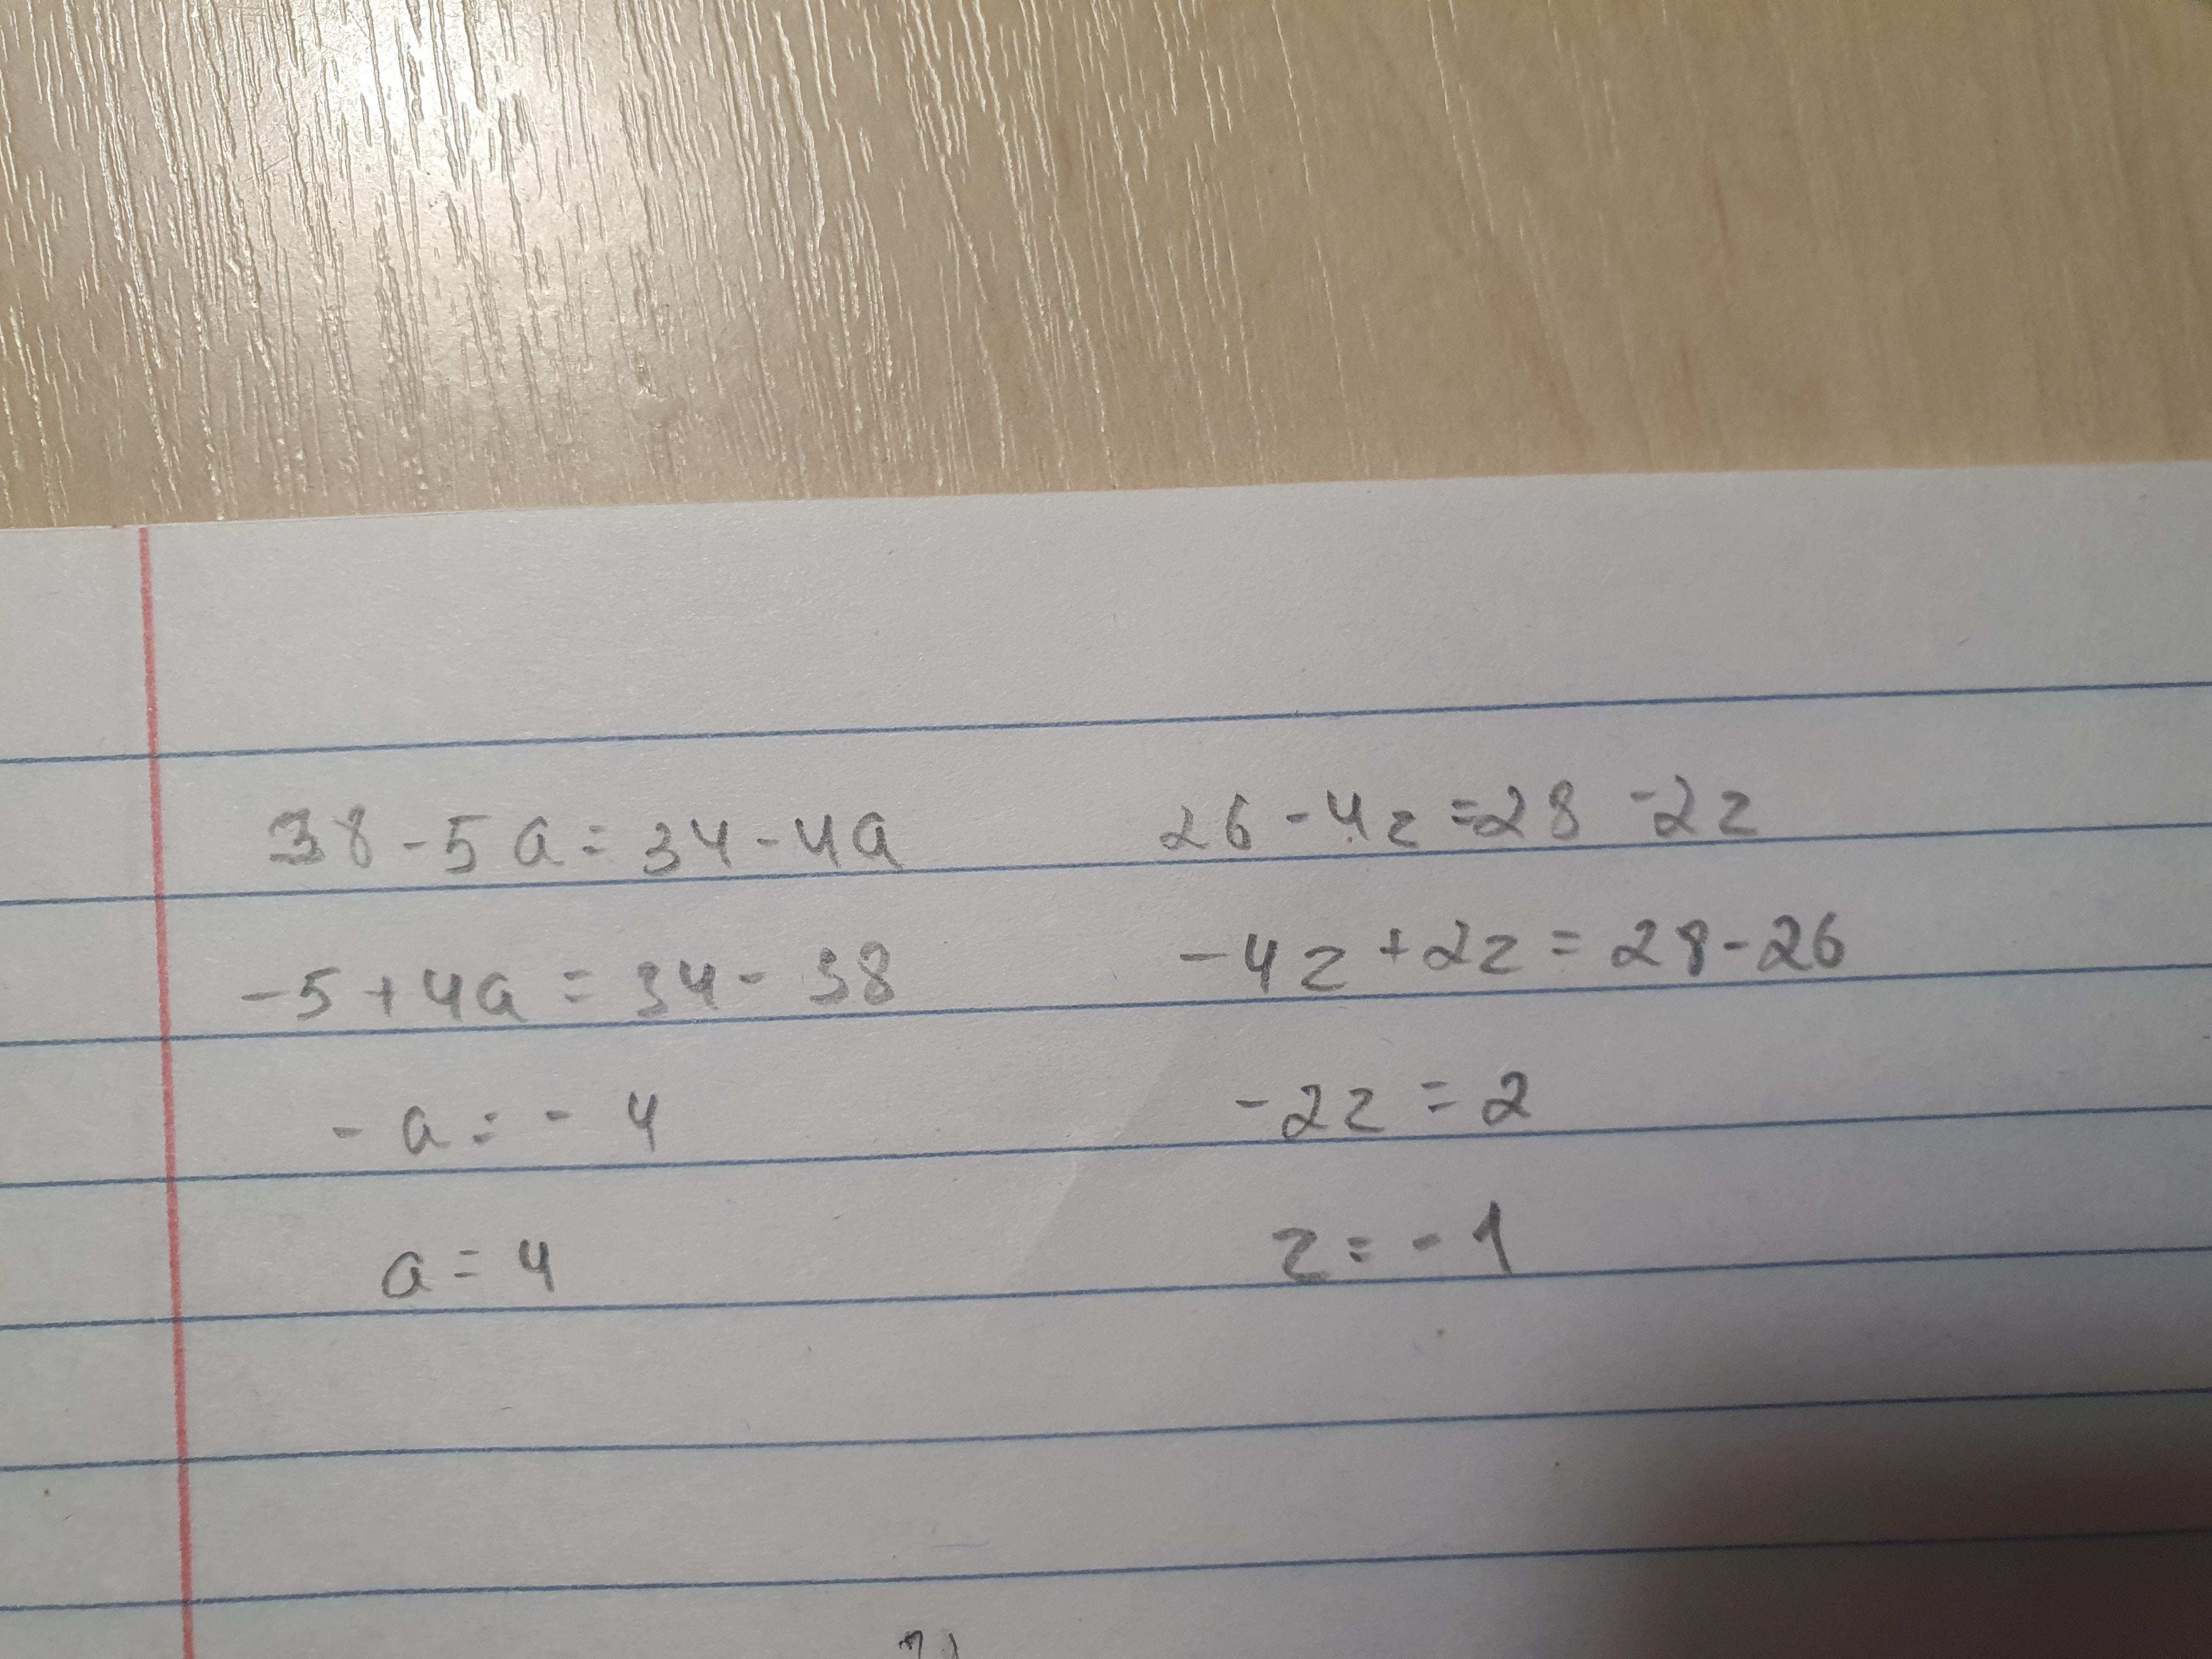 38-5a=34-4a
-5+4a=34-38
-a=-4
a=4
26-4z=28-2z
-4z+2z=28-26
-2z=2
z=-1